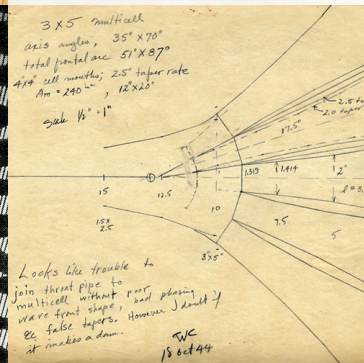 3 X 5 multicell
axis angles, 35° X 70°
total frontal arc 51° X 87°
4"x4" cell mouths; 2.5" taper rate
Am = 240 in², 12" X 20"
Scale 1½" = 1"
2.5
2.0 taper
17.5°
1.319
1.414
2"
15
12.5
10
7.5
5
1.5 X
2.5
3" X 5"
Looks like trouble to
join throat pipe to
multicell without poor
wave front shape, bad phasing
&c false tapers. However I doubt if
it makes a damn.
TWC
18 Oct 44